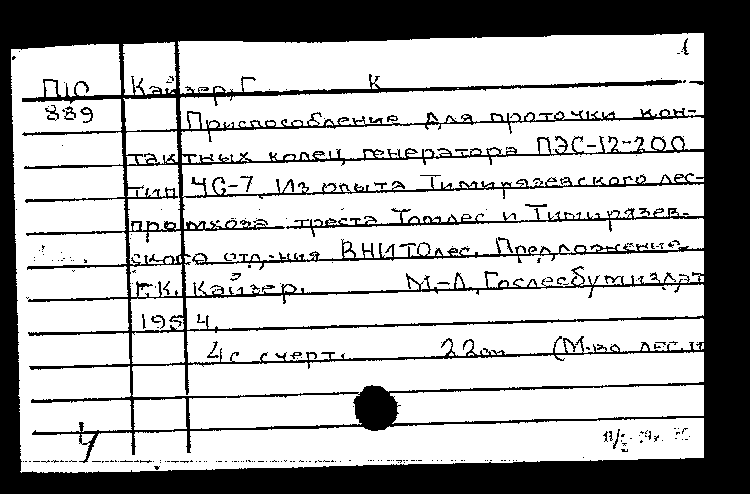 1
П10 Кайзер, Г К
889 Приспособление для проточки кон-
тактных колец генератора ПЭС-12-200
тип ЧС-7. Из опыта Тимирязевского лес-
промхоза треста Томлес и Тимирязев-
ского отд-ния ВНИТОлес. Предложение
Г.К. Кайзер. М.-Л., Гослесбумиздат
1954.
4с с черт. 22см (М-во лес. п
4